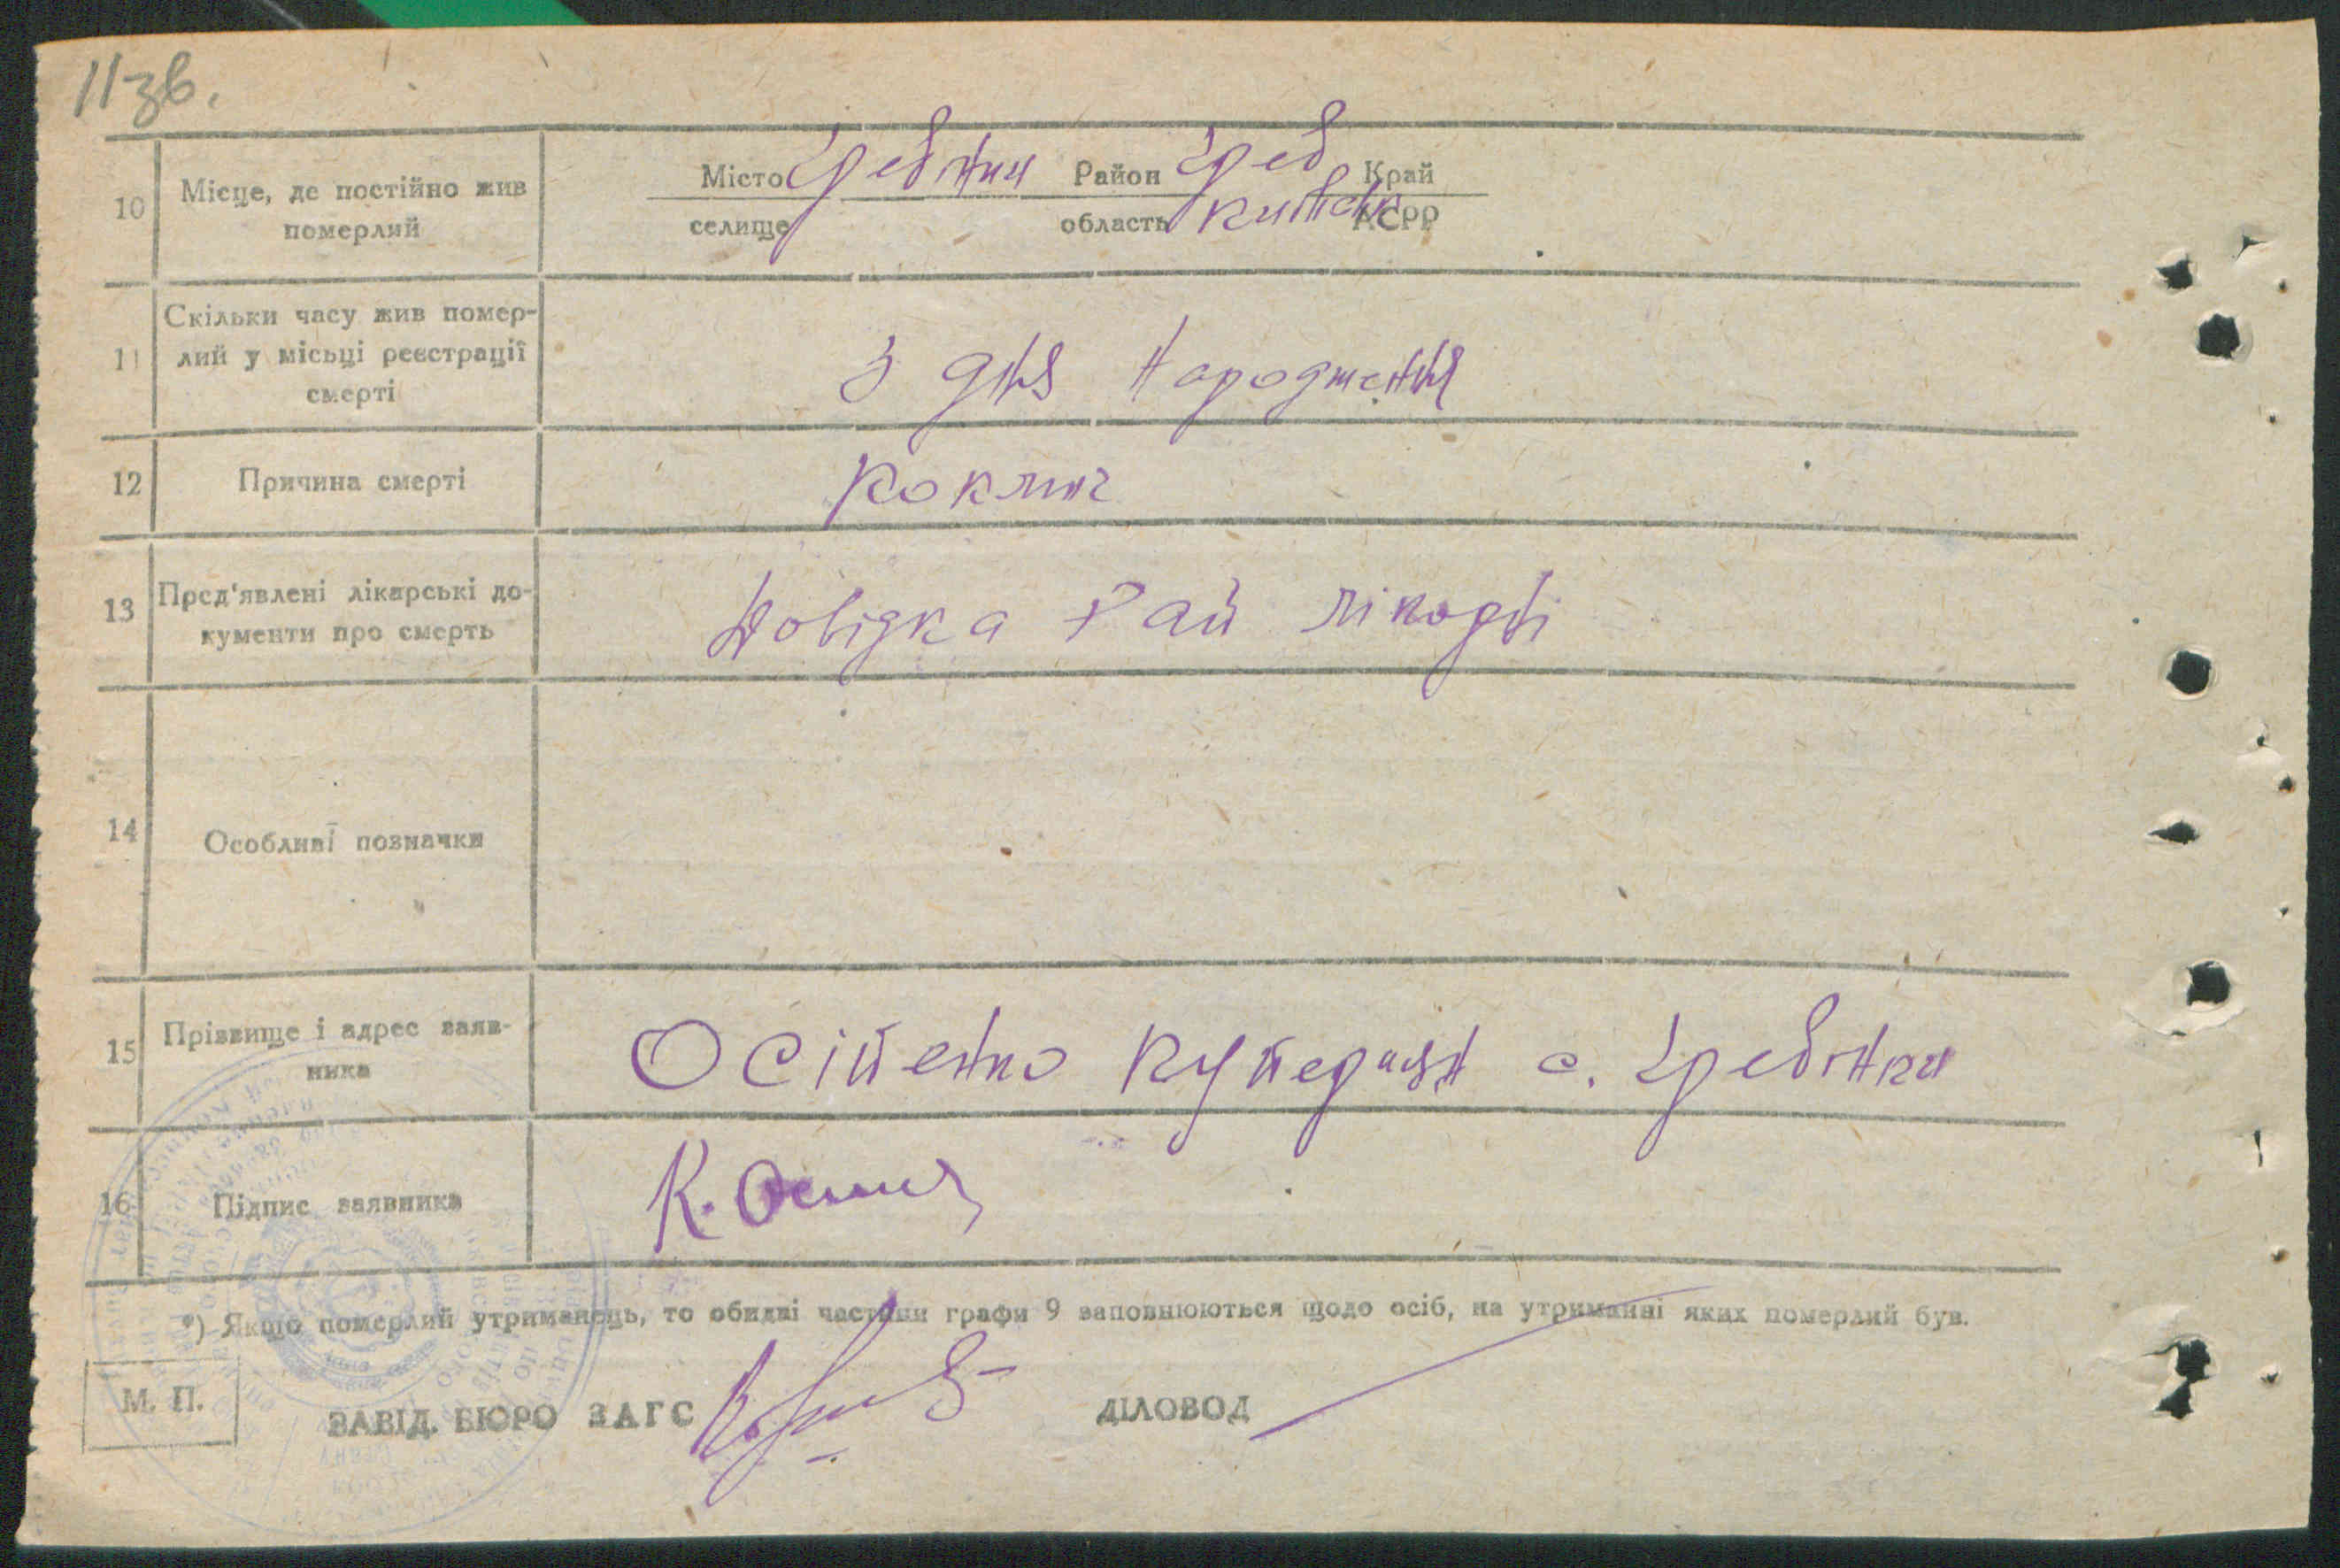 11зв.
10 Місце, де постійно жив померлий
Місто Гребінки Район Греб Край
селище область Київськ АСРР
11 Скільки часу жив помер-
лий у місьці реєстрації
смерті
З дня народження
12 Причина смерті Коклюш
13 Пред'явлені лікарські до-
кументи про смерть
Довідка Рай лікарні
14 Особливі позначки
15 Прізвище і адрес заяв-
ника
Осійенко с. Гребінки
16 Підпис заявника К.
*) Якщо померлий утриманець, то обидві частини графи 9 заповнюються щодо осіб, на утриманні яких померлий був.
М. П.
ЗАВІД. БЮРО ЗАГС ДІЛОВОД